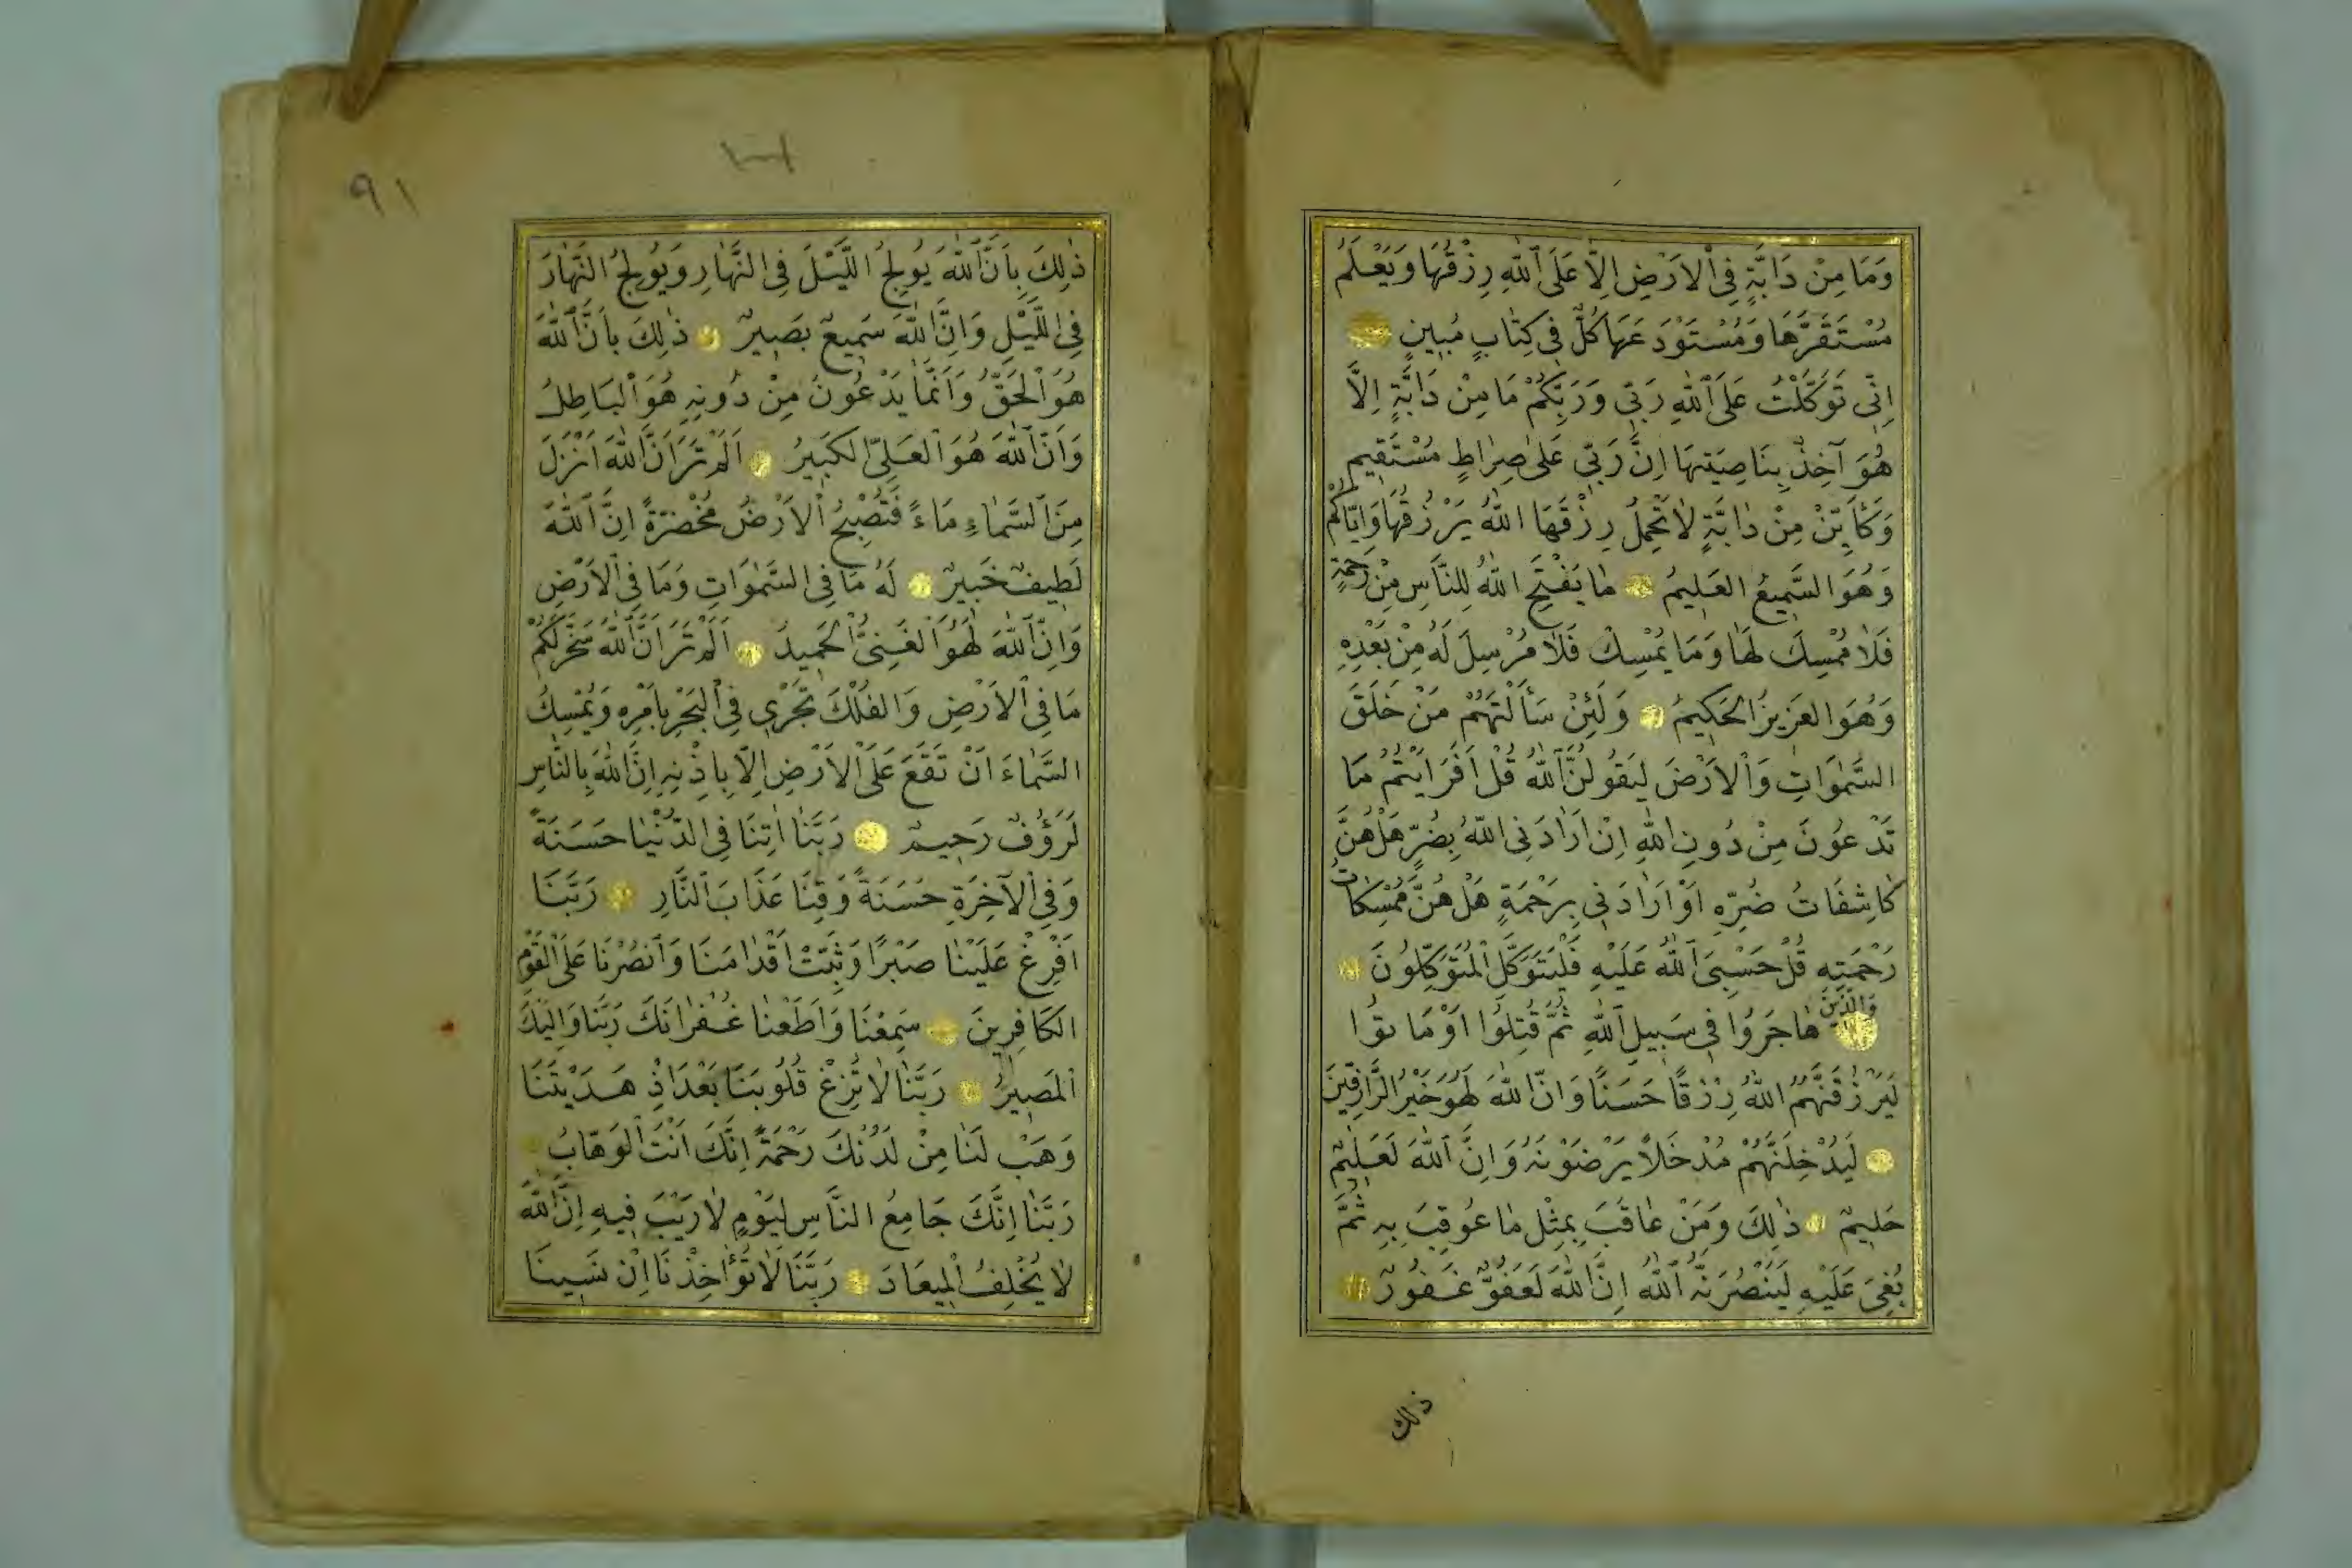 وَمَا مِنْ دَابَّةٍ فِي الْاَرْضِ اِلَّا عَلَى اللّٰهِ رِزْقُهَا وَيَعْلَمُ
مُسْتَقَرَّهَا وَمُسْتَوْدَعَهَا كُلٌّ فِي كِتَابٍ مُبِينٍ
اِنِّي تَوَكَّلْتُ عَلَى اللّٰهِ رَبِّي وَرَبِّكُمْ مَا مِنْ دَابَّةٍ اِلَّا
هُوَ آخِذٌ بِنَاصِيَتِهَا اِنَّ رَبِّي عَلٰى صِرَاطٍ مُسْتَقِيمٍ
وَكَاَيِّنْ مِنْ دَابَّةٍ لَا تَحْمِلُ رِزْقَهَا اللّٰهُ يَرْزُقُهَا وَاِيَّاكُمْ
وَهُوَ السَّمِيعُ الْعَلِيمُ مَا يَفْتَحِ اللّٰهُ لِلنَّاسِ مِنْ رَحْمَةٍ
فَلَا مُمْسِكَ لَهَا وَمَا يُمْسِكْ فَلَا مُرْسِلَ لَهُ مِنْ بَعْدِهِ
وَهُوَ الْعَزِيزُ الْحَكِيمُ وَلَئِنْ سَأَلْتَهُمْ مَنْ خَلَقَ
السَّمٰوَاتِ وَالْاَرْضَ لَيَقُولُنَّ اللّٰهُ قُلْ اَفَرَاَيْتُمْ مَا
تَدْعُونَ مِنْ دُونِ اللّٰهِ اِنْ اَرَادَنِيَ اللّٰهُ بِضُرٍّ هَلْ هُنَّ
كَاشِفَاتُ ضُرِّهِ اَوْ اَرَادَنِي بِرَحْمَةٍ هَلْ هُنَّ مُمْسِكَاتُ
رَحْمَتِهِ قُلْ حَسْبِيَ اللّٰهُ عَلَيْهِ فَلْيَتَوَكَّلِ الْمُتَوَكِّلُونَ
وَالَّذِينَ هَاجَرُوا فِي سَبِيلِ اللّٰهِ ثُمَّ قُتِلُوا اَوْ مَاتُوا
لَيَرْزُقَنَّهُمُ اللّٰهُ رِزْقًا حَسَنًا وَاِنَّ اللّٰهَ لَهُوَ خَيْرُ الرَّازِقِينَ
لَيُدْخِلَنَّهُمْ مُدْخَلًا يَرْضَوْنَهُ وَاِنَّ اللّٰهَ لَعَلِيمٌ
حَلِيمٌ ذٰلِكَ وَمَنْ عَاقَبَ بِمِثْلِ مَا عُوقِبَ بِهِ ثُمَّ
بُغِيَ عَلَيْهِ لَيَنْصُرَنَّهُ اللّٰهُ اِنَّ اللّٰهَ لَعَفُوٌّ غَفُورٌ
ذلك
٩١
ذٰلِكَ بِاَنَّ اللّٰهَ يُولِجُ اللَّيْلَ فِي النَّهَارِ وَيُولِجُ النَّهَارَ
فِي اللَّيْلِ وَاِنَّ اللّٰهَ سَمِيعٌ بَصِيرٌ ذٰلِكَ بِاَنَّ اللّٰهَ
هُوَ الْحَقُّ وَاَنَّمَا يَدْعُونَ مِنْ دُونِهِ هُوَ الْبَاطِلُ
وَاَنَّ اللّٰهَ هُوَ الْعَلِيُّ الْكَبِيرُ اَلَمْ تَرَ اَنَّ اللّٰهَ اَنْزَلَ
مِنَ السَّمَاءِ مَاءً فَتُصْبِحُ الْاَرْضُ مُخْضَرَّةً اِنَّ اللّٰهَ
لَطِيفٌ خَبِيرٌ لَهُ مَا فِي السَّمٰوَاتِ وَمَا فِي الْاَرْضِ
وَاِنَّ اللّٰهَ لَهُوَ الْغَنِيُّ الْحَمِيدُ اَلَمْ تَرَ اَنَّ اللّٰهَ سَخَّرَ لَكُمْ
مَا فِي الْاَرْضِ وَالْفُلْكَ تَجْرِي فِي الْبَحْرِ بِاَمْرِهِ وَيُمْسِكُ
السَّمَاءَ اَنْ تَقَعَ عَلَى الْاَرْضِ اِلَّا بِاِذْنِهِ اِنَّ اللّٰهَ بِالنَّاسِ
لَرَؤُفٌ رَحِيمٌ رَبَّنَا اٰتِنَا فِي الدُّنْيَا حَسَنَةً
وَفِي الْآخِرَةِ حَسَنَةً وَقِنَا عَذَابَ النَّارِ رَبَّنَا
اَفْرِغْ عَلَيْنَا صَبْرًا وَثَبِّتْ اَقْدَامَنَا وَانْصُرْنَا عَلَى الْقَوْمِ
الْكَافِرِينَ سَمِعْنَا وَاَطَعْنَا غُفْرَانَكَ رَبَّنَا وَاِلَيْكَ
الْمَصِيرُ رَبَّنَا لَا تُزِغْ قُلُوبَنَا بَعْدَ اِذْ هَدَيْتَنَا
وَهَبْ لَنَا مِنْ لَدُنْكَ رَحْمَةً اِنَّكَ اَنْتَ الْوَهَّابُ
رَبَّنَا اِنَّكَ جَامِعُ النَّاسِ لِيَوْمٍ لَا رَيْبَ فِيهِ اِنَّ اللّٰهَ
لَا يُخْلِفُ الْمِيعَادَ رَبَّنَا لَا تُؤَاخِذْنَا اِنْ نَسِينَا